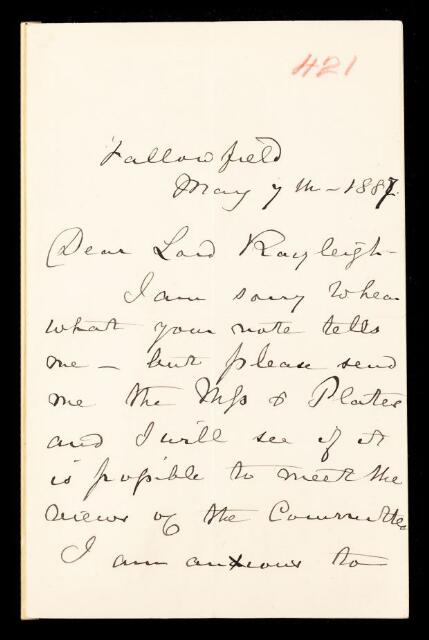 421
Fallowfield
May 7th - 1887.
Dear Lord Rayleigh -
I am sorry to hear
what your note tells
me - but please send
me the Mss & Plates
and I will see if it
is possible to meet the
views of the Committee
I am anxious to